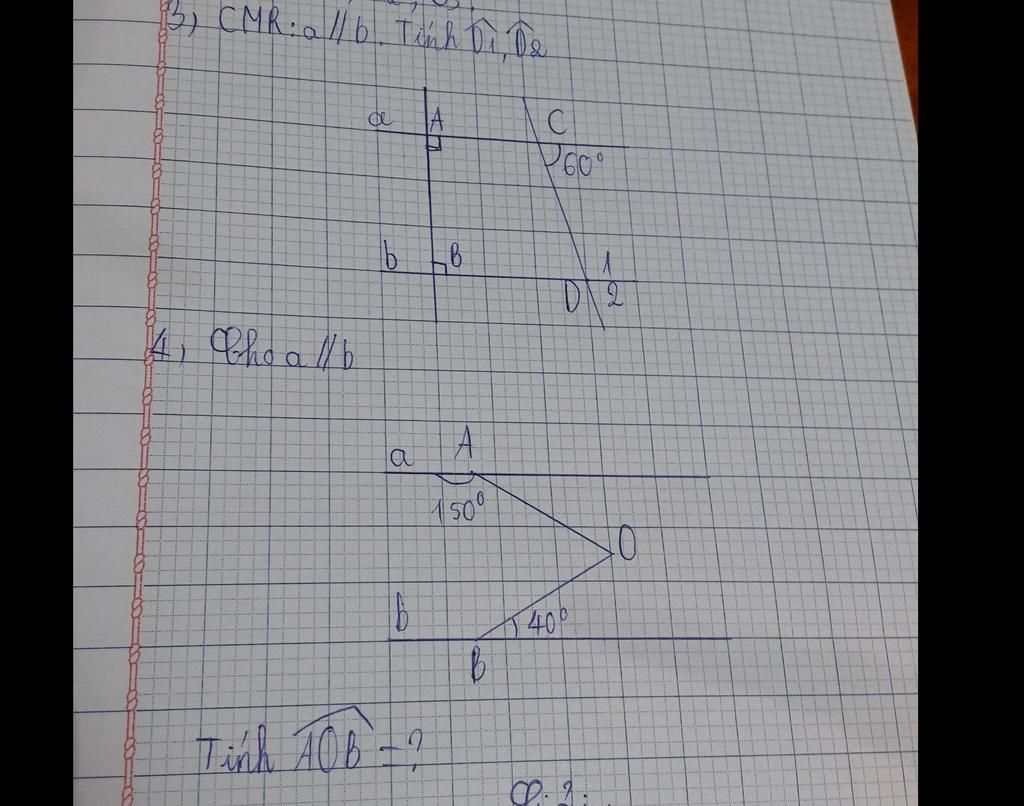 3) CMR: a // b. Tính D̂1, D̂2
a A C
60°
b B 1
D 2
4, Cho a // b
a A
150°
O
b 40°
B
Tính AOB = ?